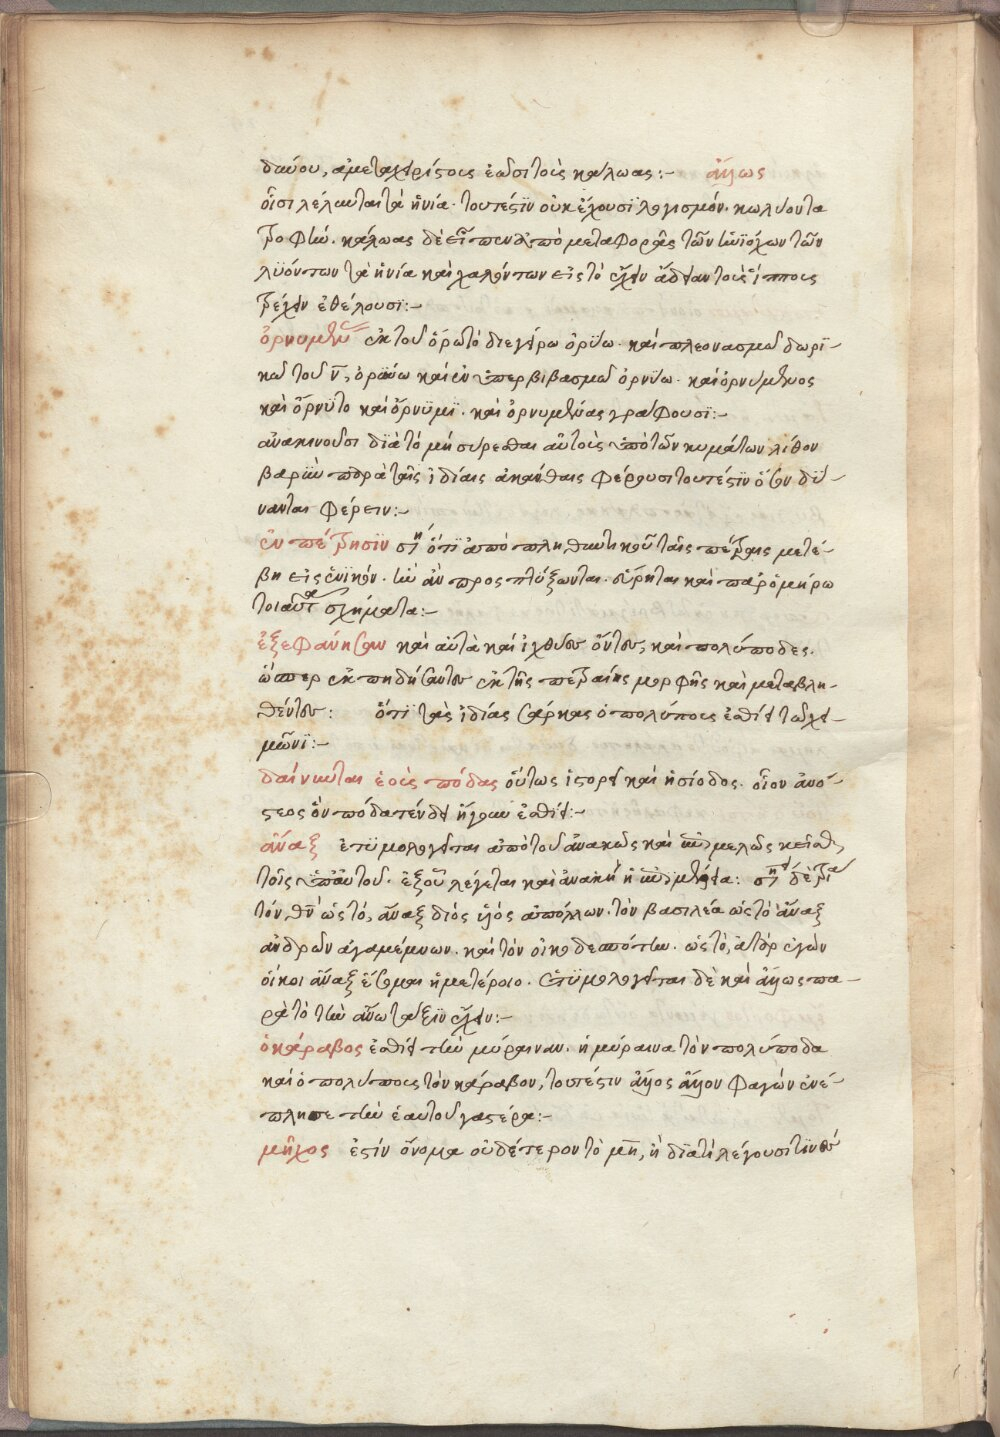 δαύου, ἀμεταχειρίστους ἐῶσι τοὺς κάλωας:– ἄλλως
οἷσι λέλυνται τὰ ἡνία· τουτέστιν οὐκ ἔχουσϊ λογισμόν· κωλύοντα
τροφὴν. κάλωας δὲ εἶπεν ἀπὸ μεταφορᾶς τῶν ἡνϊόχων τῶν
λϋόντων τὰ ἡνία καὶ χαλώντων εἰς τὸ ἔχειν ἄδειαν τοὺς ἵππους
τρέχειν ἐθέλουσϊ:–
ὀρνυμένου ἐκ τοῦ ὄρω τὸ διεγείρω ὀρύω· καὶ πλεονασμῶ δωρϊ–
κῶ τοῦ ν̄, ὀρανύω καὶ ἐν ὑπερβιβασμῶ ὀρνύω· καὶ ὀρνύμενος
καὶ ὄρνϋτο καὶ ὄρνϋμϊ· καὶ ὀρνυμένας γράφουσϊ:–
ἀνακινοῦσι διὰ τὸ μὴ σύρεσθαι αὐτοὺς ὑπὸ τῶν κυμάτων λίθον
βαρὺν παρὰ ταῖς ἰδίαις ἀκάνθαις φέρουσι τουτέστϊν ὅσον δύ–
νανται φέρειν:–
ἐν πέτρησϊν ση ὅτϊ ἀπὸ πληθυντικοῦ ταῖς πέτραις μετέ–
βη εἰς ἑνϊκόν· ἣν ἂν προσπτύξωνται. εὕρηται καὶ παρ' ὁμήρω
τοιαῦτα σχήματα:–
ἐξεφαάνησαν καὶ αὐτὰ καὶ ἰχθύων ὄντων, καὶ πολύποδες.
ὥσπερ ἐκπηδήσαντων ἐκ τῆς πετραίης μορφῆς καὶ μεταβλη–
θέντων: ὅτϊ τὰς ἰδίας σάρκας ὁ πολύπους ἐσθίει τῶ χει–
μῶνϊ:–
δαίνυνται ἑοὺς πόδας οὕτως ἱστορεῖ καὶ ἡσίοδος. οἷον ἀνό–
στεος ὃν πόδα τένδει ἤγουν ἐσθίει:–
ἄναξ ἐτϋμολογεῖται ἀπὸ τοῦ ἀνακῶς καὶ ἐπιμελῶς κεῖσθαι
τοῖς ὑπ' αὐτοῦ· ἐξ οὗ λέγεται καὶ ἀνακὴ ἡ ἐπιμέλεια: σημαίνει δὲ τρία
τὸν θν̄ ὡς τό, ἄναξ διὸς υἱὸς ἀπόλλων. τὸν βασιλέα ὡς τὸ ἄναξ
ἀνδρῶν ἀγαμέμνων. καὶ τὸν οἰκοδεσπότην. ὡς τὸ, αὐτὰρ ἐγὼν
οἴκοι ἄναξ ἔσομαι ἡμετέροιο. ἐτϋμολογεῖται δὲ καὶ ἄλλως πα–
ρὰ τὸ τὴν ἄνω τάξϊν ἔχειν:–
ὁ κάραβος ἐσθίει τὴν μύραιναν. ἡ μύραινα τὸν πολύποδα
καὶ ὁ πολύπους τὸν κάραβον, τουτέστιν ἄλλος ἄλλον φαγὼν ἐνέ–
πλησε τὴν ἑαυτοῦ γαστέρα:–
μῆχος ἐστὶν ὄνομα οὐδέτερον τὸ μῆ, ἢ διατὶ λέγουσι τϊνὲς